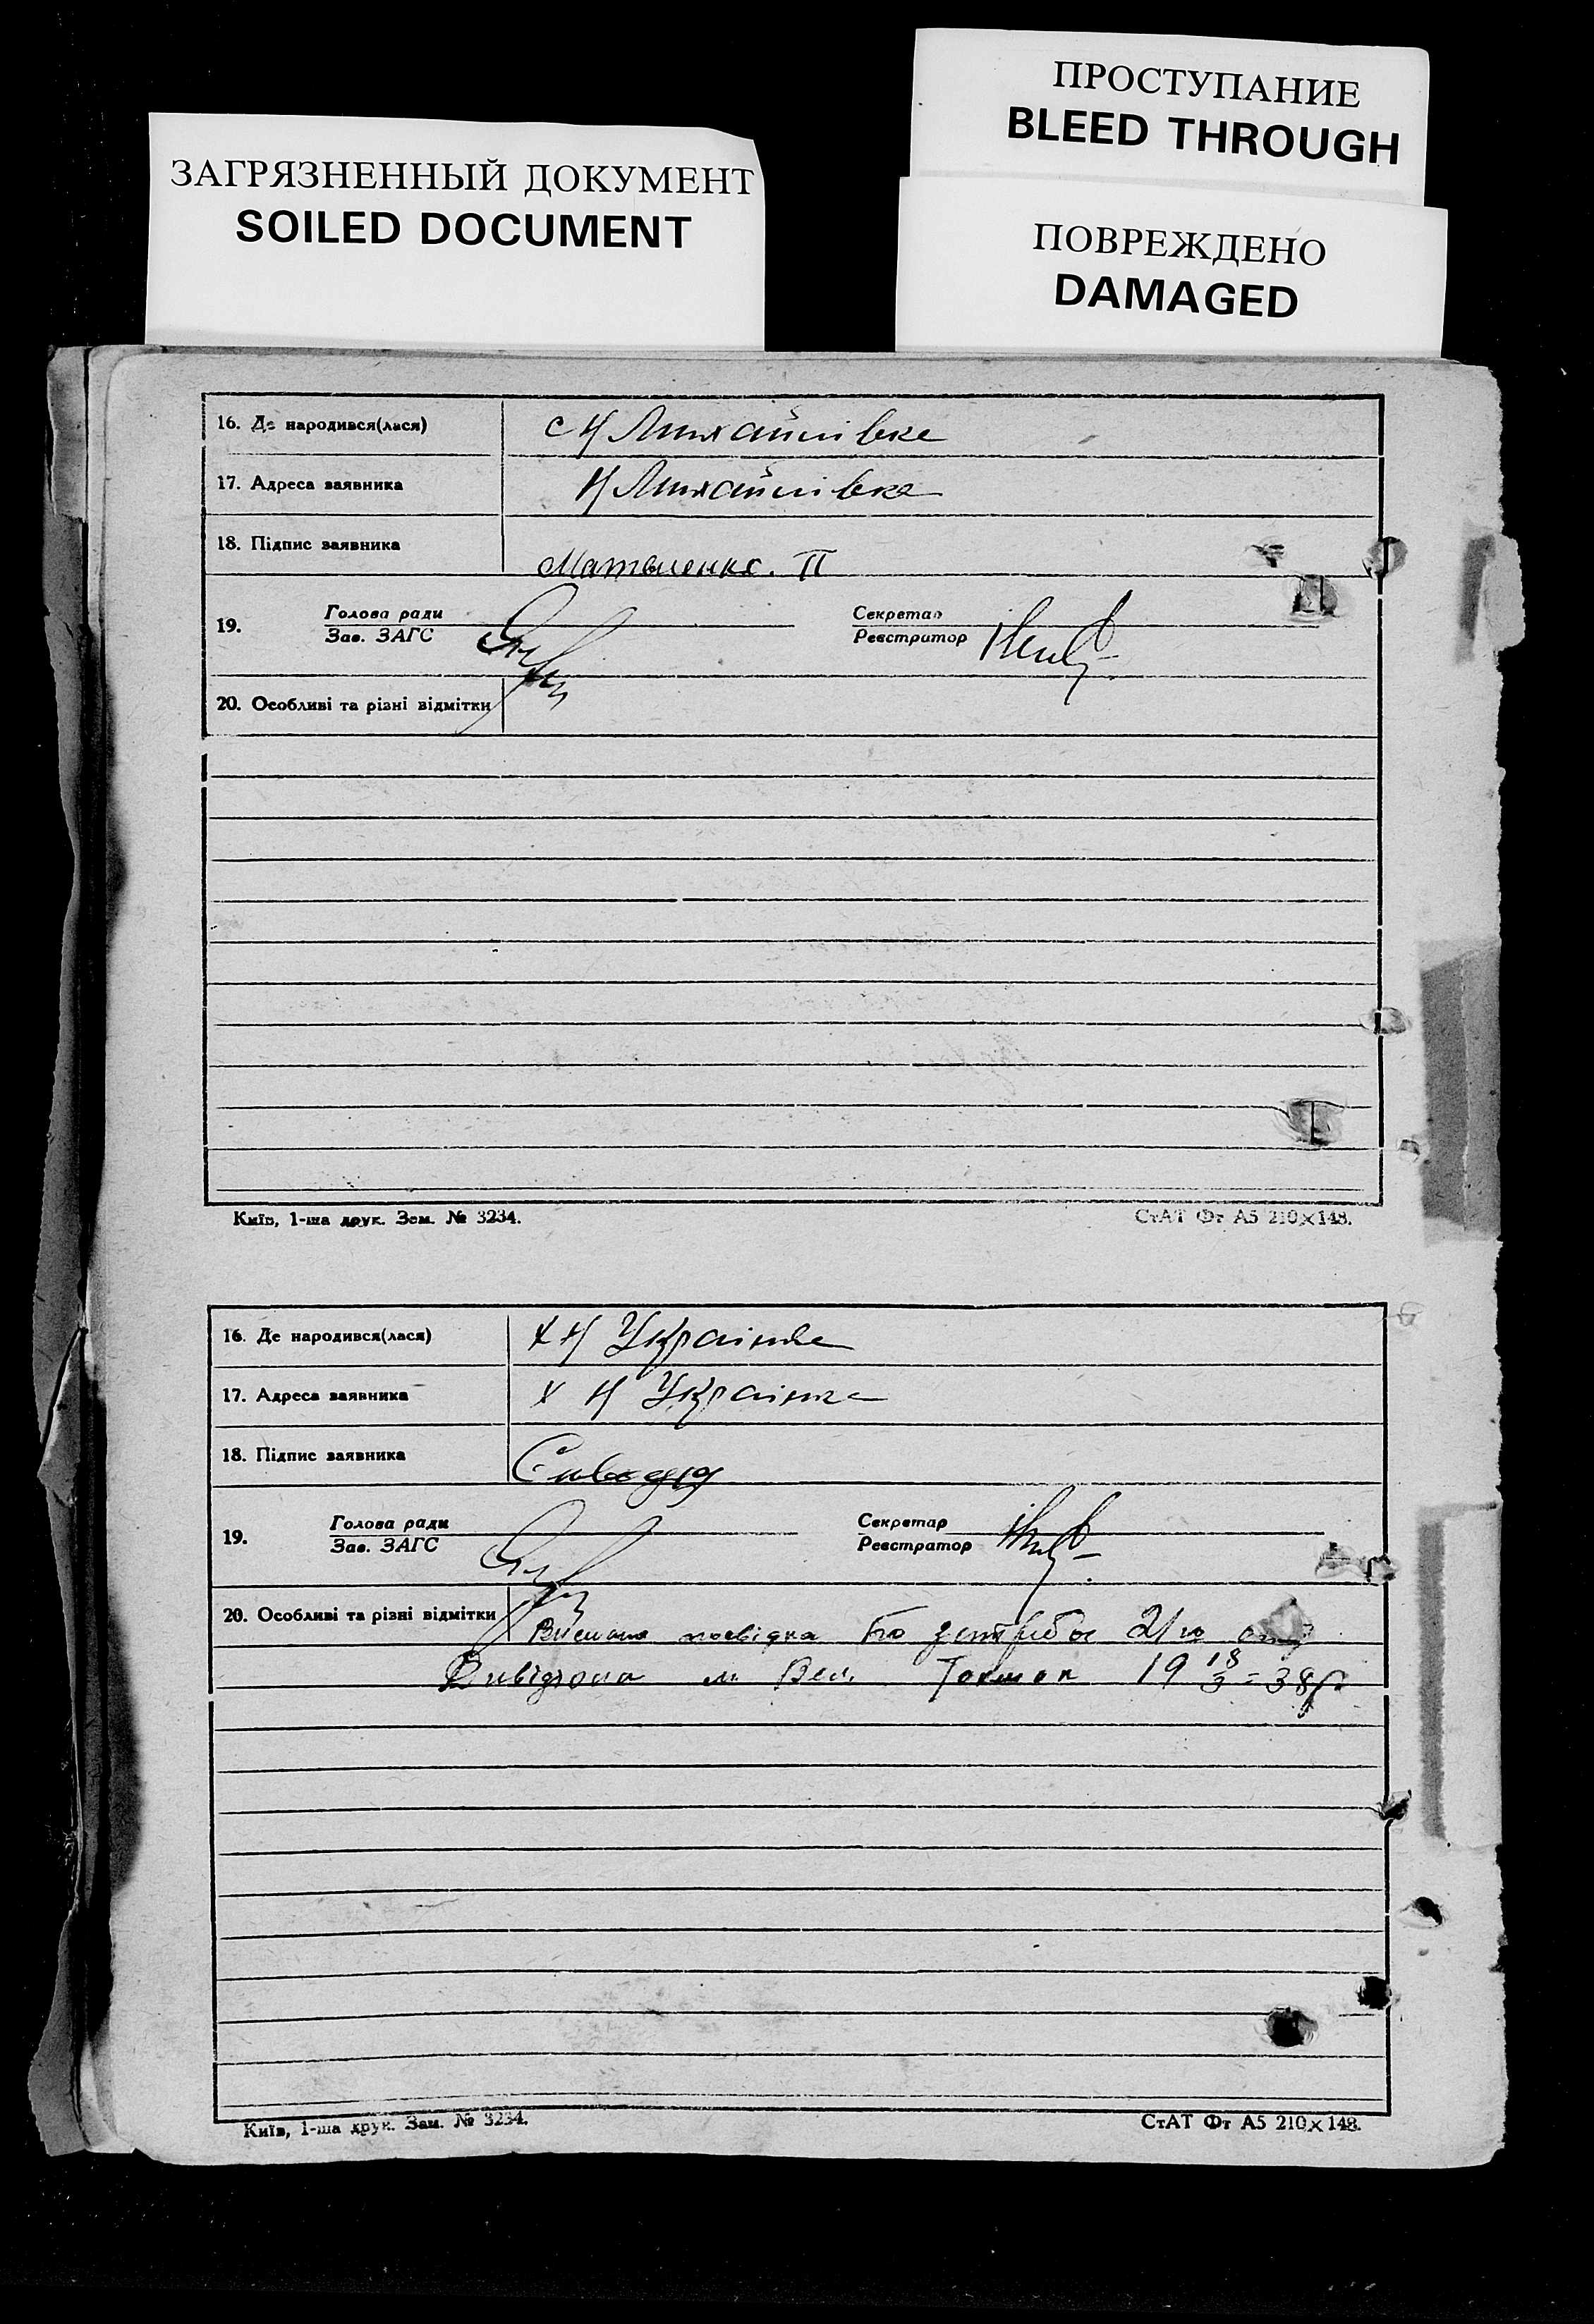 ПРОСТУПАНИЕ
BLEED THROUGH
ЗАГРЯЗНЕННЫЙ ДОКУМЕНТ
SOILED DOCUMENT
ПОВРЕЖДЕНО
DAMAGED
16. Де народився(лася) с Н Михайлівке
17. Адреса заявника Н Михайлівка
18. Підпис заявника П
19. Голова ради Секретар
Зав. ЗАГС Реєстратор
20. Особливі та різні відмітки
Київ, 1-ша друк. Зам. № 3234.
СтАТ Фт А5 210×148.
16. Де народився(лася) х Н Українке
17. Адреса заявника х Н Українка
18. Підпис заявника
19. Голова ради Секретар
Зав. ЗАГС Реєстратор
20. Особливі та різні відмітки посвідка по
м Вел. Токмак 19 18/3-38р
Київ, 1-ша друк. Зам. № 3234.
СтАТ Фт А5 210×148.